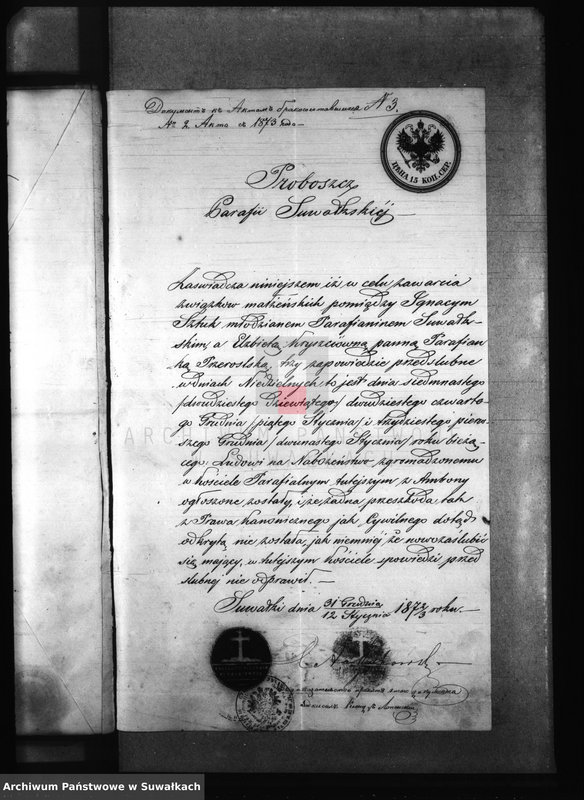 Документъ къ Актамъ бракосочетавшихся № 3.
№ 2 Акта съ 1873 года
ЦѢНА 15 КОП. СЕР.
Proboszcz
Parafii Suwałkskiéj
Zaświadcza niniejszem iż w celu zawarcia
związków małżeńskich pomiędzy Ignacym
Sztuk młodzianem Parafianinem Suwałk-
skim, a Elżbietą Kryszciówną panną Parafian
ką Przeroślską, trzy zapowiedzie przedślubne
w dniach Niedzielnych to jest dnia siedmnastego
/dwudziestego dziewiątego/ dwudziestego czwarte-
go Grudnia /piątego Stycznia/ i trzydziestego pierw-
szego Grudnia /dwunastego Stycznia/ roku bieżą-
cego Ludowi na Nabożeństwo zgromadzonemu
w kościele Parafialnym tutejszym z Ambony
ogłoszone zostały, i że żadna przeszkoda tak
z Prawa kanonicznego jak Cywilnego dotąd
odkrytą nie została, jak niemniéj że nowozaślubić
się mający, w tutejszym kościele spowiedzi przed
ślubnej nie odprawił. —
Suwałki dnia 31 Grudnia / 12 Stycznia 1872/3 roku. —
Archiwum Państwowe w Suwałkach